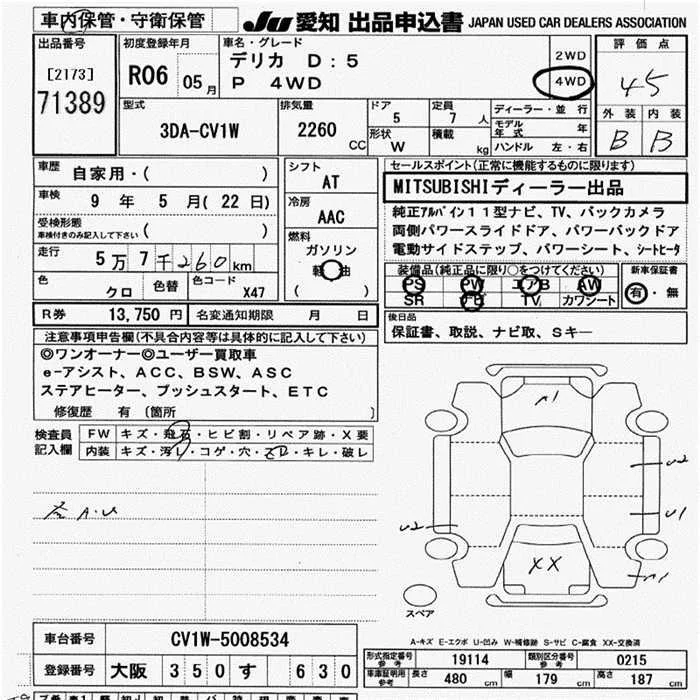 車内保管・守衛保管 JU 愛知 出品申込書 JAPAN USED CAR DEALERS ASSOCIATION
出品番号 [2173] 71389
初度登録年月 R06 05月
車名・グレード デリカ D:5 P 4WD
2WD 4WD
評価点 45
外装 B 内装 B
型式 3DA-CV1W
排気量 2260 CC
ドア 5 形状 W
定員 7人 積載 kg
ディーラー・並行
モデル年式 年
ハンドル 左・右
車歴 自家用・( )
車検 9年 5月(22日)
受検形態 車検付きのみ記入して下さい ( )
走行 5万7千260km
色 クロ 色替 色コード X47
シフト AT
冷房 AAC
燃料 ガソリン 軽油 ( )
セールスポイント(正常に機能するものに限ります)
MITSUBISHIディーラー出品
純正アルパイン11型ナビ、TV、バックカメラ
両側パワースライドドア、パワーバックドア
電動サイドステップ、パワーシート、シートヒータ
装備品(純正品に限り○をつけてください)
PS PW エアB AW
SR ナビ TV カワシート
新車保証書 有・無
R券 13,750円 名変通知期限 月 日
後日品
保証書、取説、ナビ取、Sキー
注意事項申告欄(不具合内容等は具体的に記入して下さい)
◎ワンオーナー◎ユーザー買取車
e-アシスト、ACC、BSW、ASC
ステアヒーター、プッシュスタート、ETC
修復歴 有 〔箇所 〕
検査員記入欄
FW キズ・飛石・ヒビ割・リペア跡・X要
内装 キズ・汚レ・コゲ・穴・スレ・キレ・破レ
A・U
A1
U2
U1
U2
XX
A1
スペア
A-キズ E-エクボ U-凹み W-補修跡 S-サビ C-腐食 XX-交換済
車台番号 CV1W-5008534
登録番号 大阪 350 す 630
形式指定番号 参考 19114 類別区分番号 参考 0215
車庫証明用 参考 長さ 480 cm 幅 179 cm 高さ 187 cm